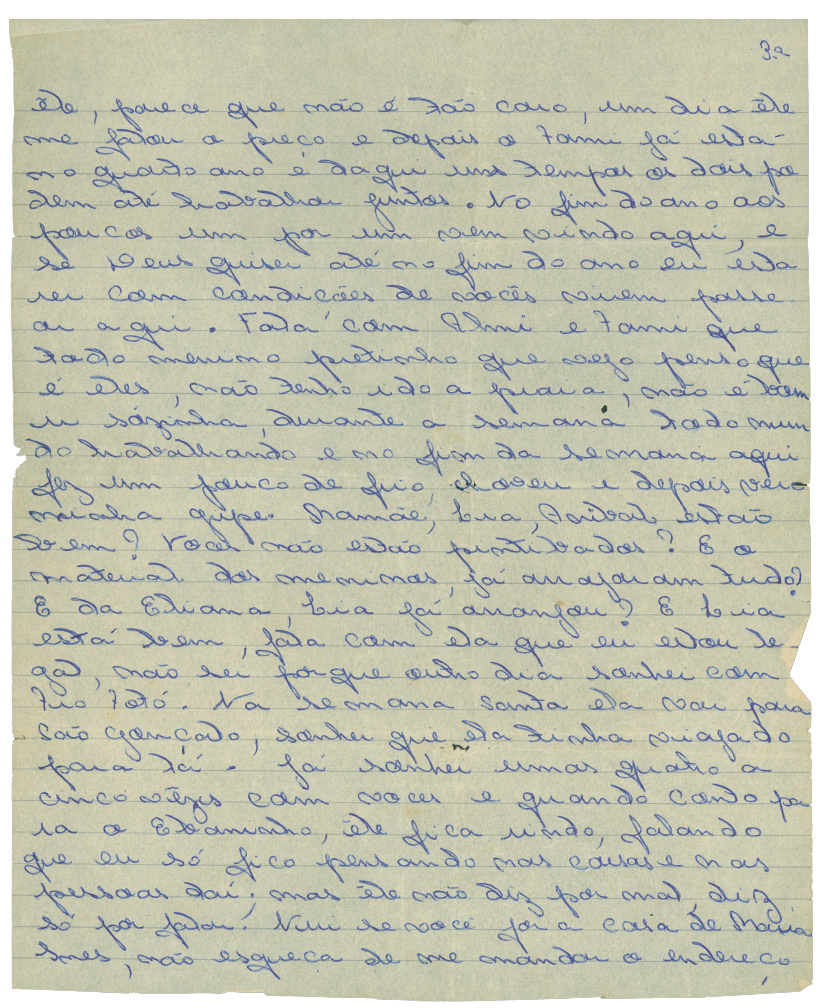 3.a
êle, parece que não é tão caro, um dia êle
me falou o preço e depois o Tami já está
no quarto ano e daqui uns tempos os dois po
dem até trabalhar juntos. No fim do ano aos
poucos um por um vem vindo aqui, e
se Deus quiser até no fim do ano eu esta
rei com condições de vocês virem passe
ar aqui. Fala com Almi e Tami que
todo menino pretinho que vejo penso que
é eles, não tenho ido a praia, não é bom
ir sòzinha, durante a semana todo mun
do trabalhando e no fim da semana aqui
fez um pouco de frio, choveu e depois veio
minha gripe. Mamãe, Lia, estão
bem? Voces não estão gripados? E o
material dos meninos, já arranjaram tudo?
E da Eliana, Lia já arranjou? E Lia
está bem, fala com ela que eu estou le
gal, não sei porque outro dia sonhei com
Tio Totó. Na semana santa ela vai para
São Gonçalo, sonhei que ela tinha viajado
para lá. Já sonhei umas quatro a
cinco vêzes com voces e quando conto pa
ra o êle fica rindo, falando
que eu só fico pensando nas coisas e nas
pessoas daí, mas êle não diz por mal, diz
só por falar. Nini se você for a casa de Maria
Ines, não esqueça de me mandar o endereço